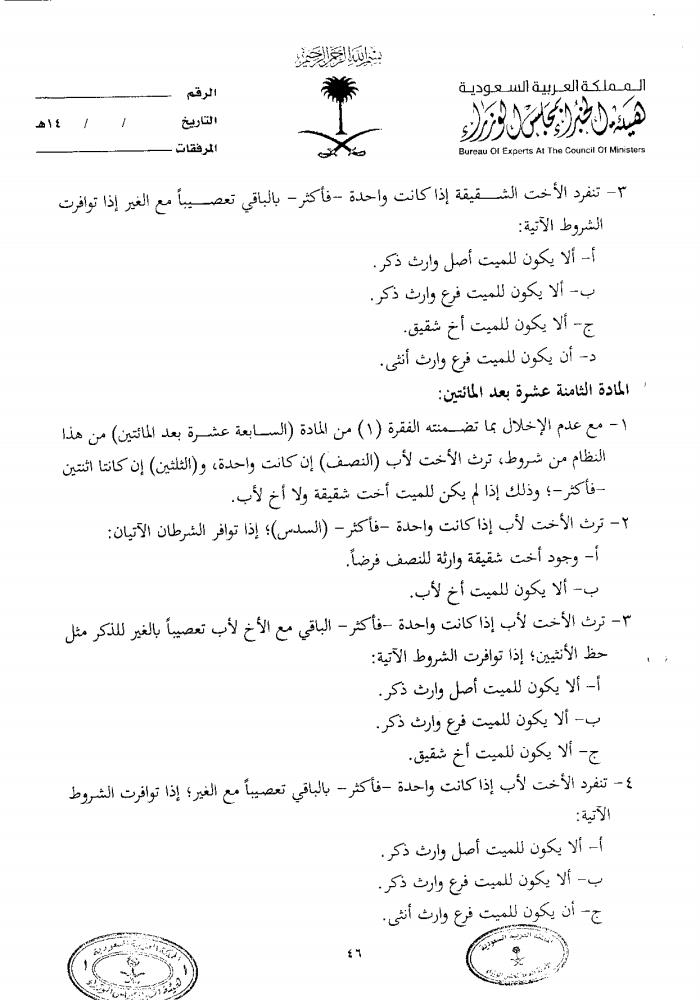 بسم الله الرحمن الرحيم
المملكة العربية السعودية
هيئة الخبراء بمجلس الوزراء
Bureau Of Experts At The Council Of Ministers
الرقم
التاريخ / / ١٤هـ
المرفقات
٣- تنفرد الأخت الشقيقة إذا كانت واحدة -فأكثر- بالباقي تعصيباً مع الغير إذا توافرت
الشروط الآتية:
أ- ألا يكون للميت أصل وارث ذكر.
ب- ألا يكون للميت فرع وارث ذكر.
ج- ألا يكون للميت أخ شقيق.
د- أن يكون للميت فرع وارث أنثى.
المادة الثامنة عشرة بعد المائتين:
١- مع عدم الإخلال بما تضمنته الفقرة (١) من المادة (السابعة عشرة بعد المائتين) من هذا
النظام من شروط، ترث الأخت لأب (النصف) إن كانت واحدة، و(الثلثين) إن كانتا اثنتين
-فأكثر-؛ وذلك إذا لم يكن للميت أخت شقيقة ولا أخ لأب.
٢- ترث الأخت لأب إذا كانت واحدة -فأكثر- (السدس)؛ إذا توافر الشرطان الآتيان:
أ- وجود أخت شقيقة وارثة للنصف فرضاً.
ب- ألا يكون للميت أخ لأب.
٣- ترث الأخت لأب إذا كانت واحدة -فأكثر- الباقي مع الأخ لأب تعصيباً بالغير للذكر مثل
حظ الأنثيين؛ إذا توافرت الشروط الآتية:
أ- ألا يكون للميت أصل وارث ذكر.
ب- ألا يكون للميت فرع وارث ذكر.
ج- ألا يكون للميت أخ شقيق.
٤- تنفرد الأخت لأب إذا كانت واحدة -فأكثر- بالباقي تعصيباً مع الغير؛ إذا توافرت الشروط
الآتية:
أ- ألا يكون للميت أصل وارث ذكر.
ب- ألا يكون للميت فرع وارث ذكر.
ج- أن يكون للميت فرع وارث أنثى.
٤٦